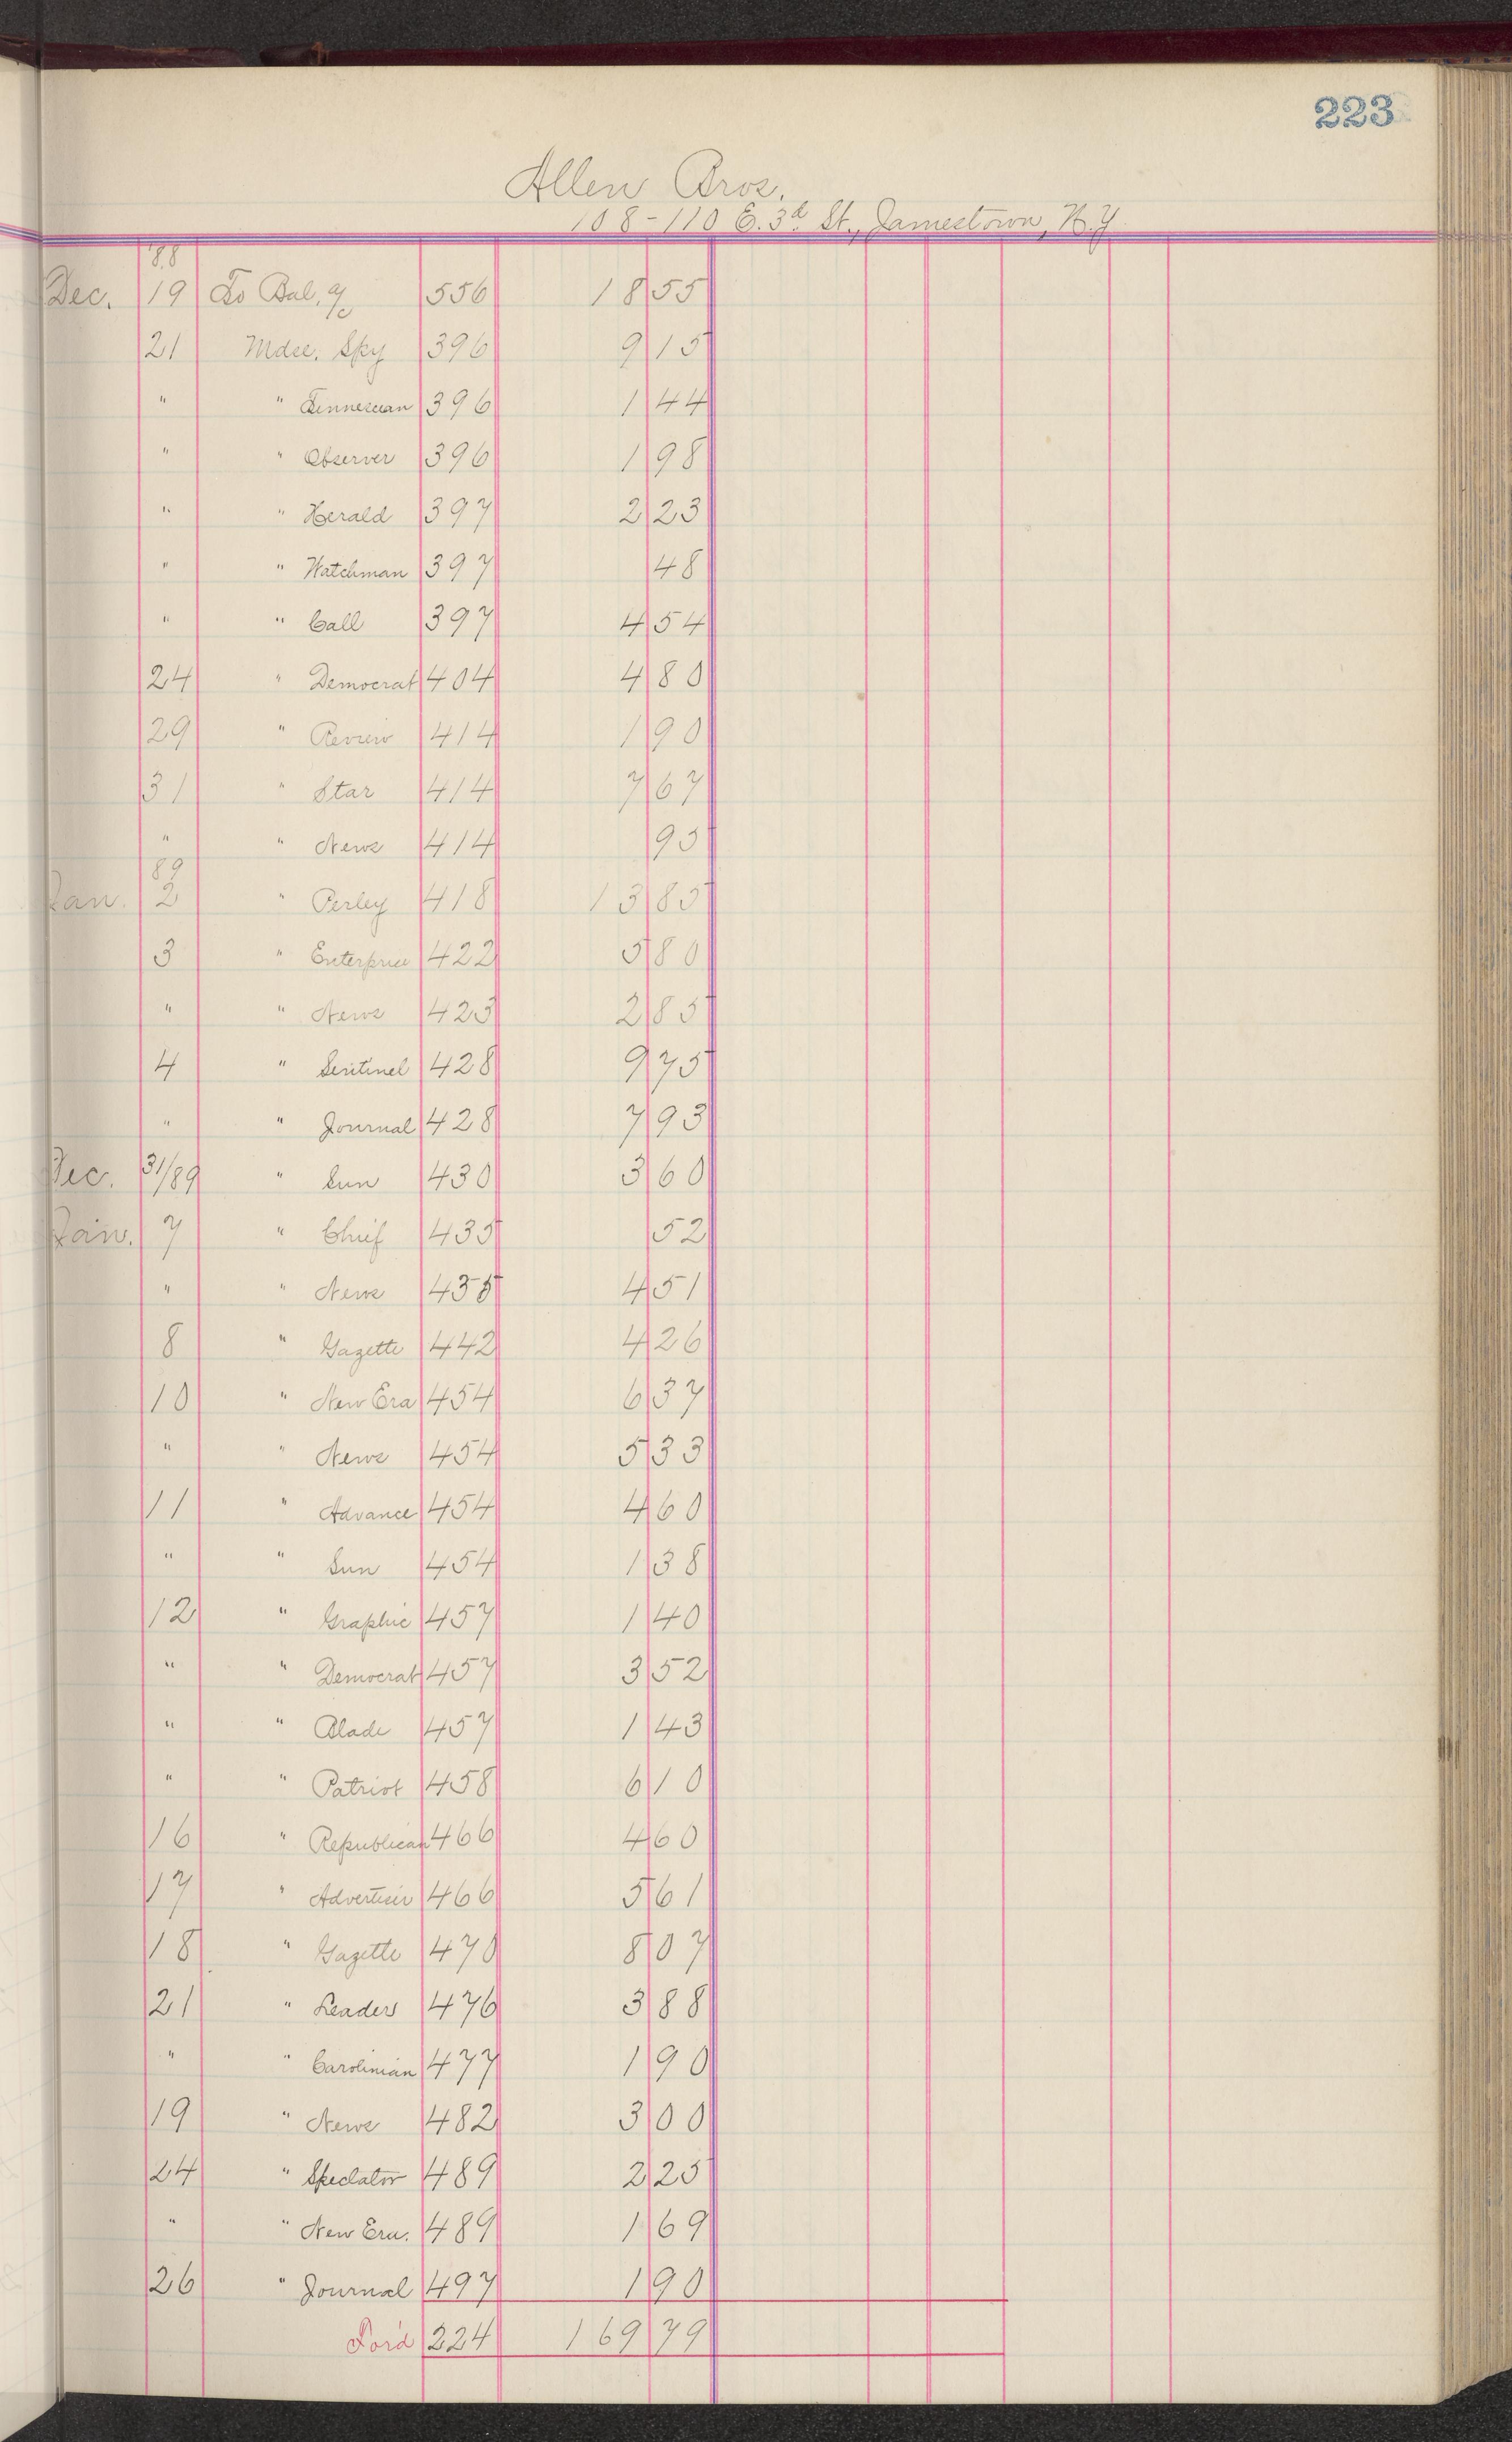 223
Allen Bros.
108-110 E. 3d St., Jamestown, N.Y.
'88
Dec. 19 To Bal. % 556 18 55
21 Mdse. Spy 396 9 15
" " Tennessean 396 1 44
" " Observer 396 1 98
" " Herald 397 2 23
" " Watchman 397 48
" " Call 397 4 54
24 " Democrat 404 4 80
29 " Review 414 1 90
31 " Star 414 7 67
" " News 414 95
89
Jan. 2 " Perley 418 13 85
3 " Enterprise 422 5 80
" " News 423 2 85
4 " Sentinel 428 9 75
" " Journal 428 7 93
Dec. 31/89 " Sun 430 3 60
Jan. 7 " Chief 435 52
" " News 435 4 51
8 " Gazette 442 4 26
10 " New Era 454 6 37
" " News 454 5 33
11 " Advance 454 4 60
" " Sun 454 1 38
12 " Graphic 457 1 40
" " Democrat 457 3 52
" " Blade 457 1 43
" " Patriot 458 6 10
16 " Republican 466 4 60
17 " Advertiser 466 5 61
18 " Gazette 470 8 07
21 " Leader 476 3 88
" " Carolinian 477 1 90
19 " News 482 3 00
24 " Spectator 489 2 25
" " New Era. 489 1 69
26 " Journal 497 1 90
For'd 224 169 79